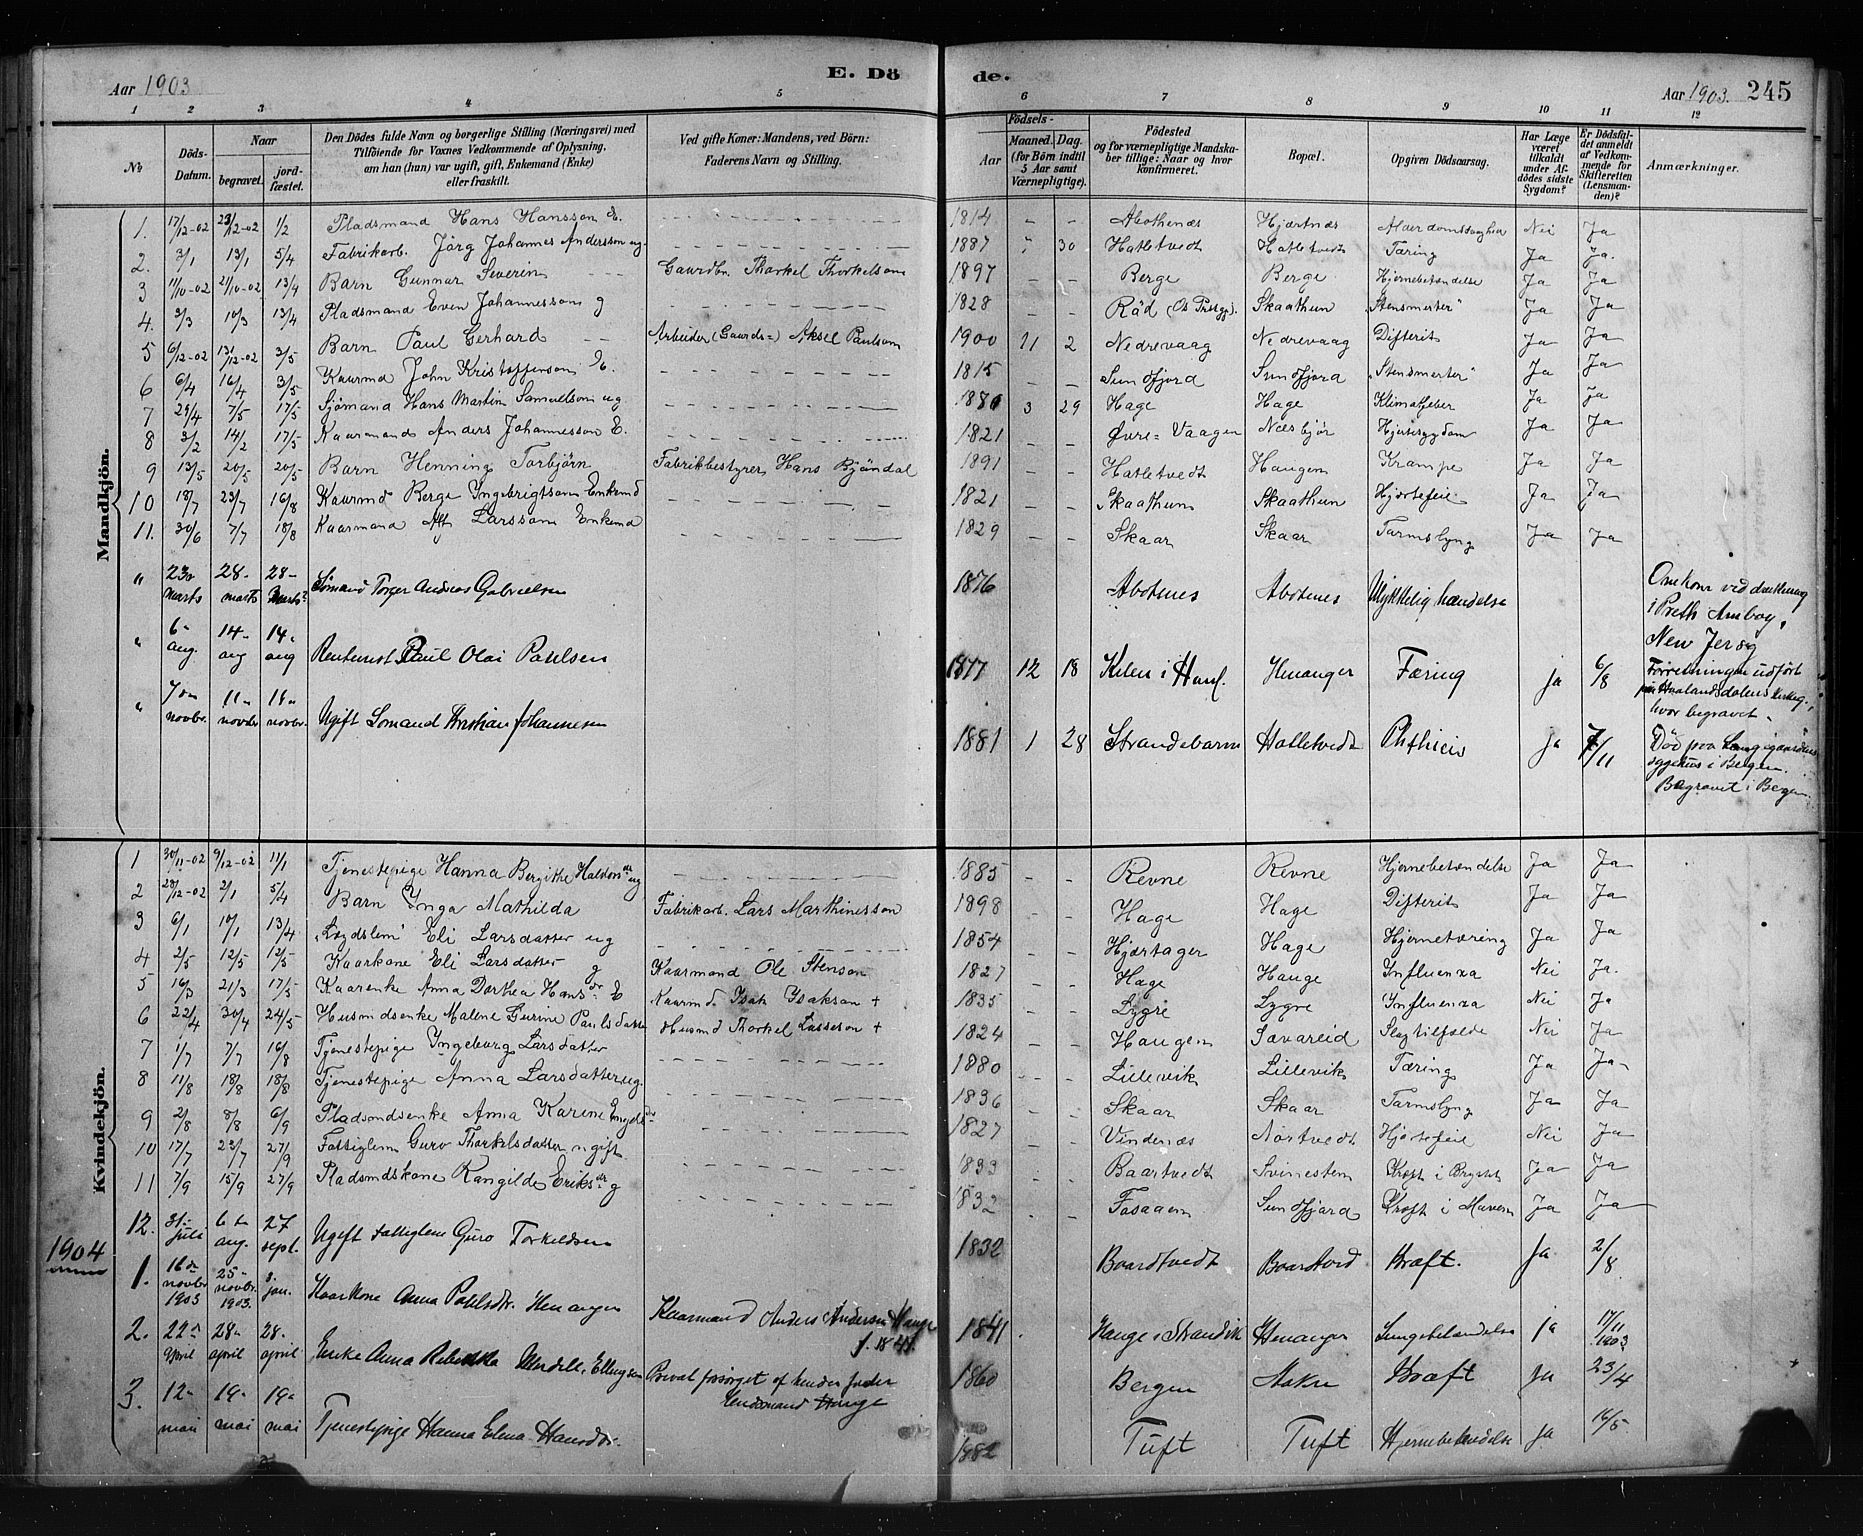 Aar 1903
E. Døde.
Aar 1903. 245
1 2 3 4 5 6 7 8 9 10 11 12
No
Døds-Datum.
Naar
begravet.
jordfæstet.
Den Dødes fulde Navn og borgerlige Stilling (Næringsvei) med
Tilføiende for Voxnes Vedkommende af Oplysning,
om han (hun) var ugift, gift, Enkemand (Enke)
eller fraskilt.
Ved gifte Koner: Mandens, ved Børn:
Faderens Navn og Stilling.
Fødsels-
Aar
Maaned. Dag.
(for Børn indtil
5 Aar samt
Værnepligtige).
Fødested
og for værnepligtige Mandskaber tillige: Naar og hvor
konfirmeret.
Bopæl.
Opgiven Dødsaarsag.
Har Læge
været
tilkaldt
under Afdødes sidste
Sygdom?
Er Dødsfaldet anmeldt
af Vedkommende for
Skifteretten
(Lensmanden)?
Anmærkninger.
Mandkjøn.
1. 17/12-02 23/12-02 1/2 Pladsmand Hans Hansson E. 1814 - - Abothenæs Hjartnæs Alderdomssvaghed Nei Ja
2. 3/1 13/1 5/4 Fabrikarb. Jörg Johannes Andersson ug 1887 7 30 Hatletvedt Hatletvedt Tæring Ja Ja.
3 11/10-02 21/10-02 13/4 Barn Gunnar Severin Gaardbr. Thorkel Thorkelson 1897 - - Berge Berge Hjernebetændelse Ja Ja
4. 3/3 10/3 13/4 Pladsmand Even Johannesson g 1828 - - Röd (Os Prestgj). Skaathun "Stensmerter" Ja Ja
5 6/12-02 13/12-02 3/5 Barn Paul Gerhard Arbeider (Gaards=) Aksel Paulson 1900 11 2 Nedrevaag Nedrevaag Difterit Ja Ja
6 6/4 16/4 3/5 Kaarmd John Kristoffersson E. 1815 - - Sundfjord Sundfjord "Stensmerter" Ja Ja
7 29/4 7/5 17/5 Sjømand Hans Martin Samuelson ug 1880 3 29 Hage Hage Klimatfeber Ja Ja
8 3/2 14/2 17/5 Kaarmand Anders Johannesson E. 1821 - - Øvre=Vaagen Næsbjør Hjertesygdom Ja Ja
9 13/5 20/5 20/5 Barn Henning Torbjörn Fabrikbestyrer Hans Bjöndal 1891 - - Hatletvedt Haugen Krampe Ja Ja
10 18/7 23/7 16/8 Kaarmd Berge Ingebrigtson Enkemd 1821 - - Skaathun Skaathun Hjertefeil Ja Ja
11. 30/6 7/7 18/8 Kaarmand Larsson Enkemd 1829 - - Skaar Skaar Tarmslyng Ja Ja
" 23 marts 28 marts 28 marts Sømand Torger Andreas Gabrielsen 1876 Abotnes Abotnes Ulykkelig hændelse Omkom ved drukning i Perth Amboy, New Jersey
" 6 aug. 14 aug 14 aug Rentenist Paul Olai Paulsen 1877 12 18 Kilen i Haal. Henanger Tæring ja 6/8 Forretningen udført paa Haalandsdalens kirkeg., hvor begravet.
" 7 novbr. 11 novbr 11 novbr. Ugift Sømand Kristian Johannesen 1881 1 28 Strandebarm Hatletvedt Phthisis ja 7/11 Død paa Lungegaardens sygehus i Bergen. Begravet i Bergen.
Kvindekjön.
1 30/11-02 9/12-02 11/1 Tjenestepige Hanna Bergitte Halvorsdr ug 1885 - - Revne Revne Hjernebetændelse Ja Ja
2 28/12-02 2/1 5/4 Barn Inga Mathilda Fabrikarb. Lars Marthinesson 1898 - - Hage Hage Difterit Ja Ja
3 6/1 10/1 13/4 "Lægdslem" Eli Larsdatter ug 1854 - - Hjartager Hage Hjernetæring Ja Ja
4 2/5 12/5 12/5 Kaarkone Eli Larsdatter g Kaarmand Ole Stenson 1827 - - Hage Hauge Influenza Nei Ja.
5 16/3 21/3 17/5 Kaarenke Anna Dorthea Hansdr E Kaarmd Isak Isakson + 1835 - - Lygre Lygre Influenza Nei Ja
6 22/4 30/4 24/5 Husmdsenke Malene Gurine Paulsdatter Husmd Thorkel Lasseson + 1824 - - Haugen Sævareid Slagtilfælde Nei Ja
7 1/7 7/7 16/8 Tjenestepige Ingeborg Larsdatter 1880 - - Lillevik Lillevik Tæring Ja Ja
8 11/8 18/8 18/8 Tjenestepige Anna Larsdatter ug. 1836 - - Skaar Skaar Tarmslyng Ja Ja
9 2/8 8/8 6/9 Pladsmdsenke Anna Karine 1827 - - Vindenæs Nortvedt Hjertefeil Nei Ja
10 17/7 23/7 27/9 Fattiglem Guro Thorkelsdatter ugift 1833 - - Baartvedt Svinesten Kræft i Brystet Ja Ja
11 7/9 15/9 27/9 Pladsmdskone Rangilde Eriksdr g 1832 - - Fosaaen Sundfjord Kræft i Maven Ja Ja
12. 31 juli 6 aug. 27 sept. Ugift Fattiglem Guro Torkildsen 1832 Boardtvedt Kræft. Ja 2/8
1904
1. 16 novbr 1903 25 novbr. 1903. 3. jan. Kaarkone Anna Pahlsdtr. Henanger Kaarmand Anders Andersen Hauge f. 1841 Hauge i Strandvik Henanger Lungebetændelse ja 17/11 1903
2. 22 april 28 april 28. april Enke Anna Rebekka Ellingsen Privat forsørget af hendes fader Lendsmand Hauge 1860 Bergen Kræft ja 23/4
3. 12 mai 19 mai 19 mai Tjenestepige Hanna Elena Hansdtr. 1882 Tuft Tuft Hjernebetændelse ja 16/5.